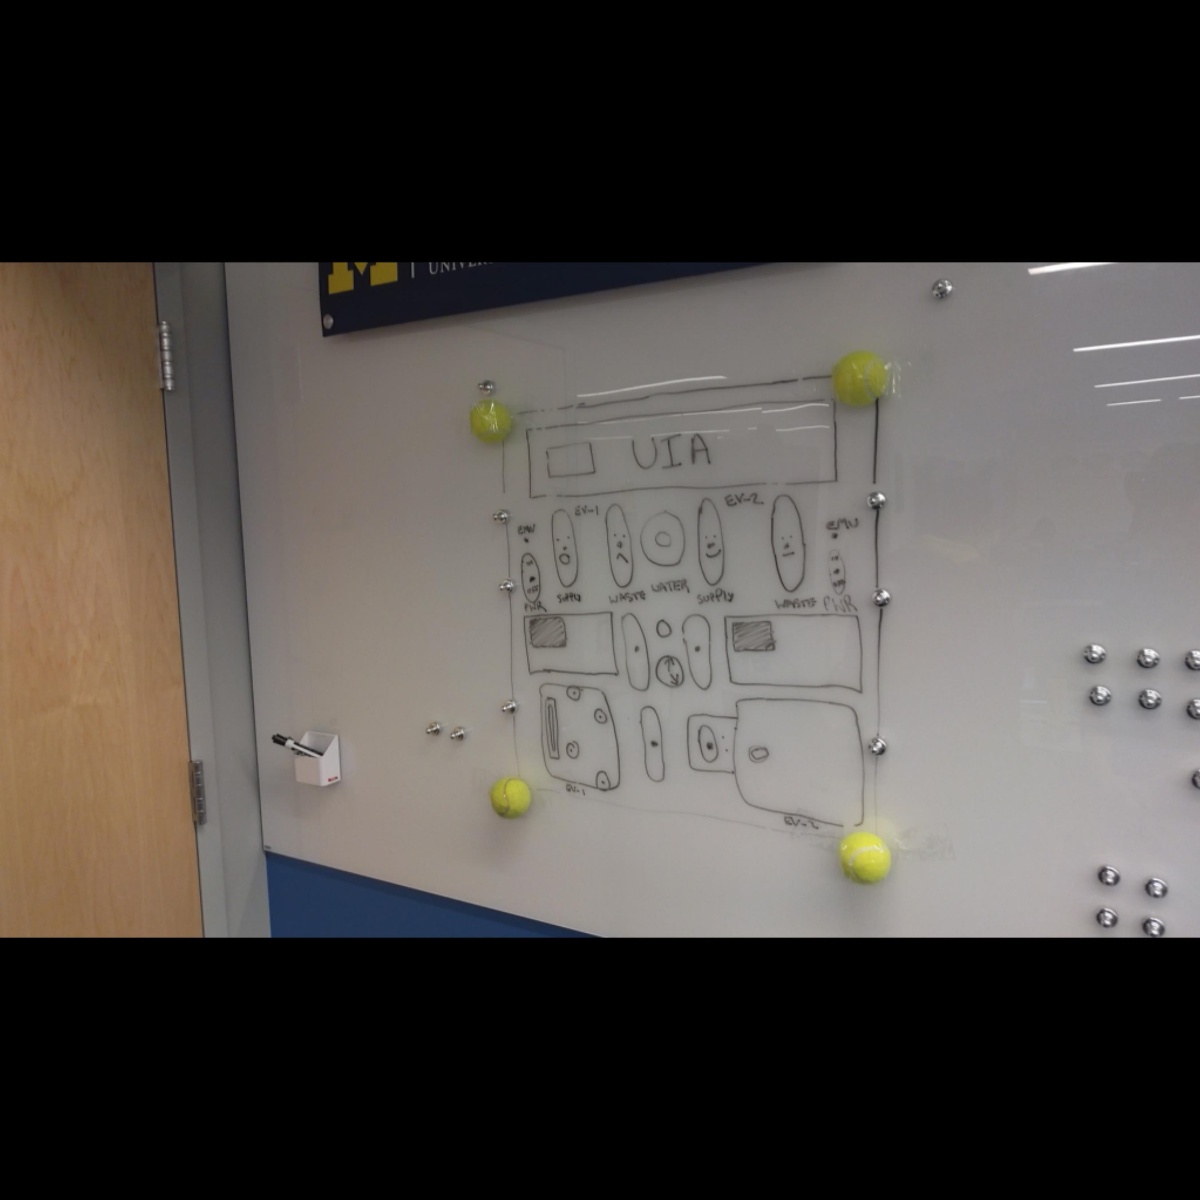 M
UNIVER
UIA
EV-1
EV-2
EMU
EMU
PWR
SUPPLY
WASTE
WATER
SUPPLY
WASTE
PWR
EV-1
EV-2